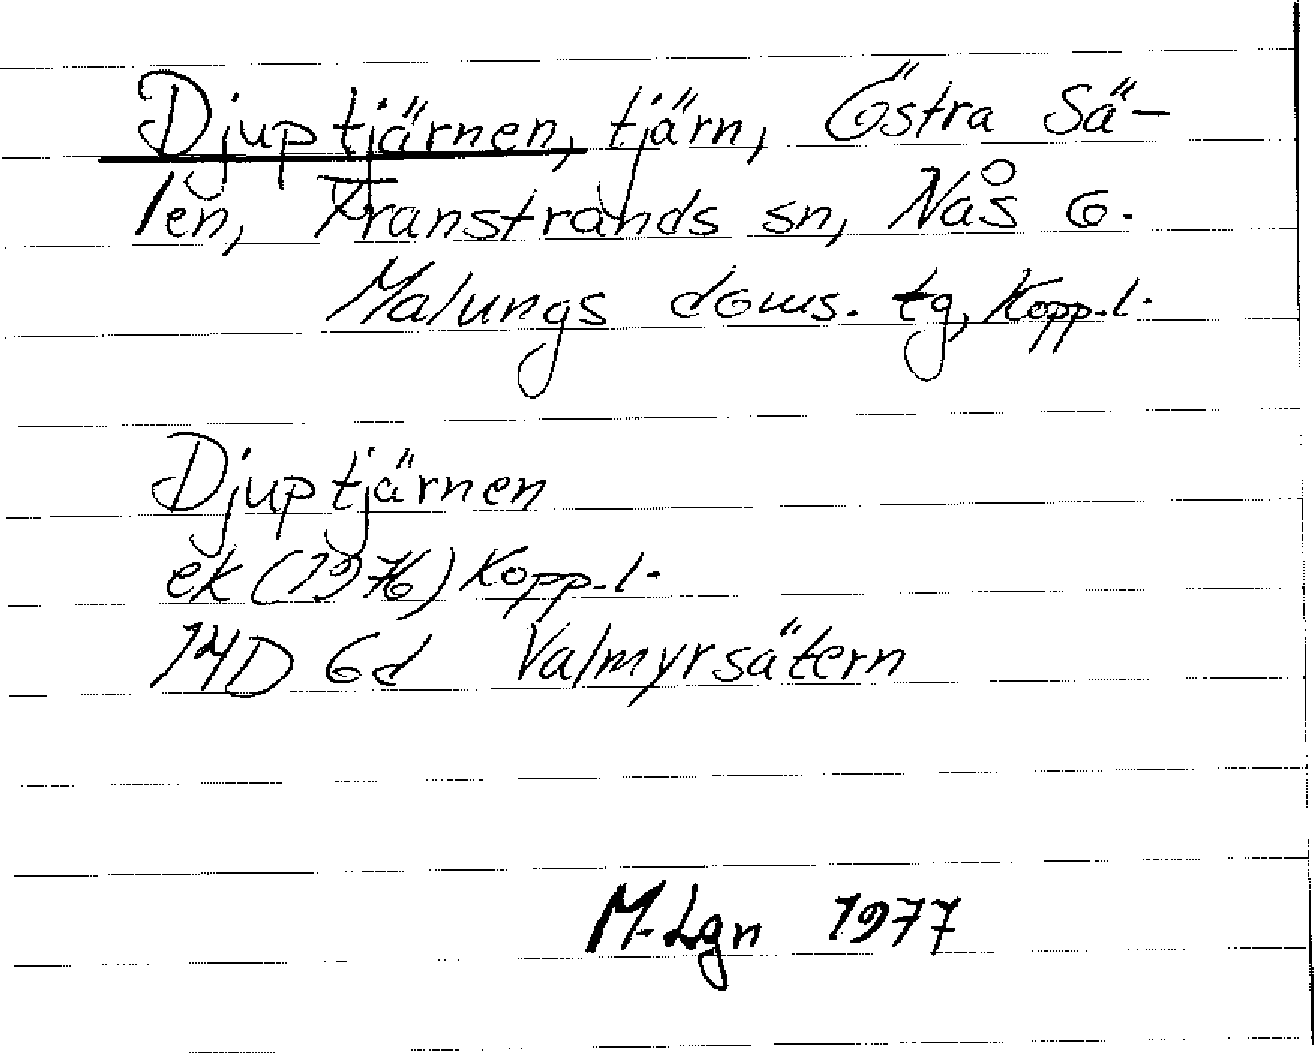 Djuptjärnen, tjärn, Östra Sä-
len, Transtrands sn, Nås o.
Malungs doms. tg, Kopp. l.
Djuptjärnen
ek (1976) Kopp. l.
14D 6d Valmyrsätern
M-Lgn 1977